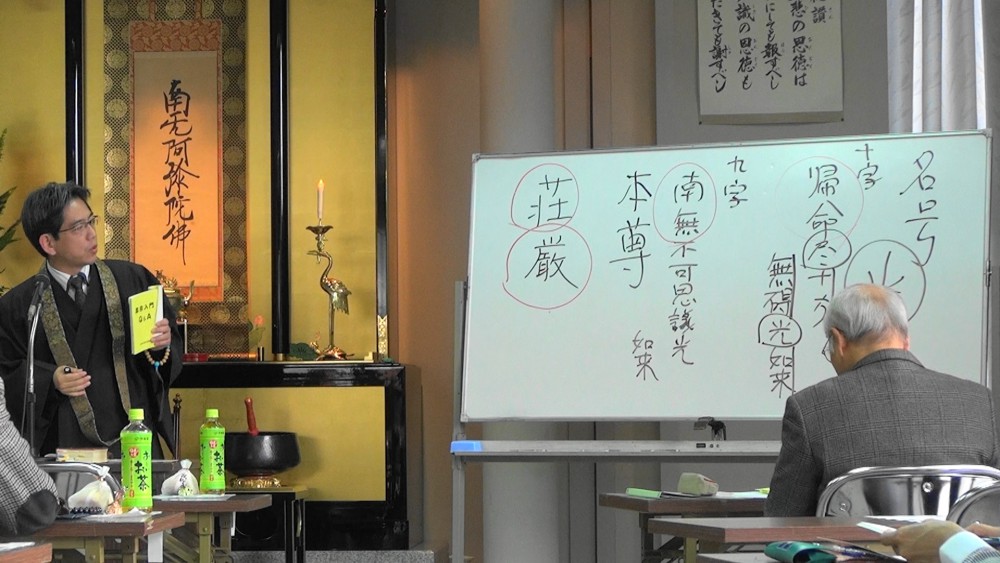 南无阿弥陀佛
讃
悲の恩徳は
にしても報ずべし
識の恩徳も
だきても謝すべし
名号
十字
帰命尽十方
無碍光如来
九字
南無不可思議光
如来
本尊
荘厳
入門
Q&A
お茶
お茶